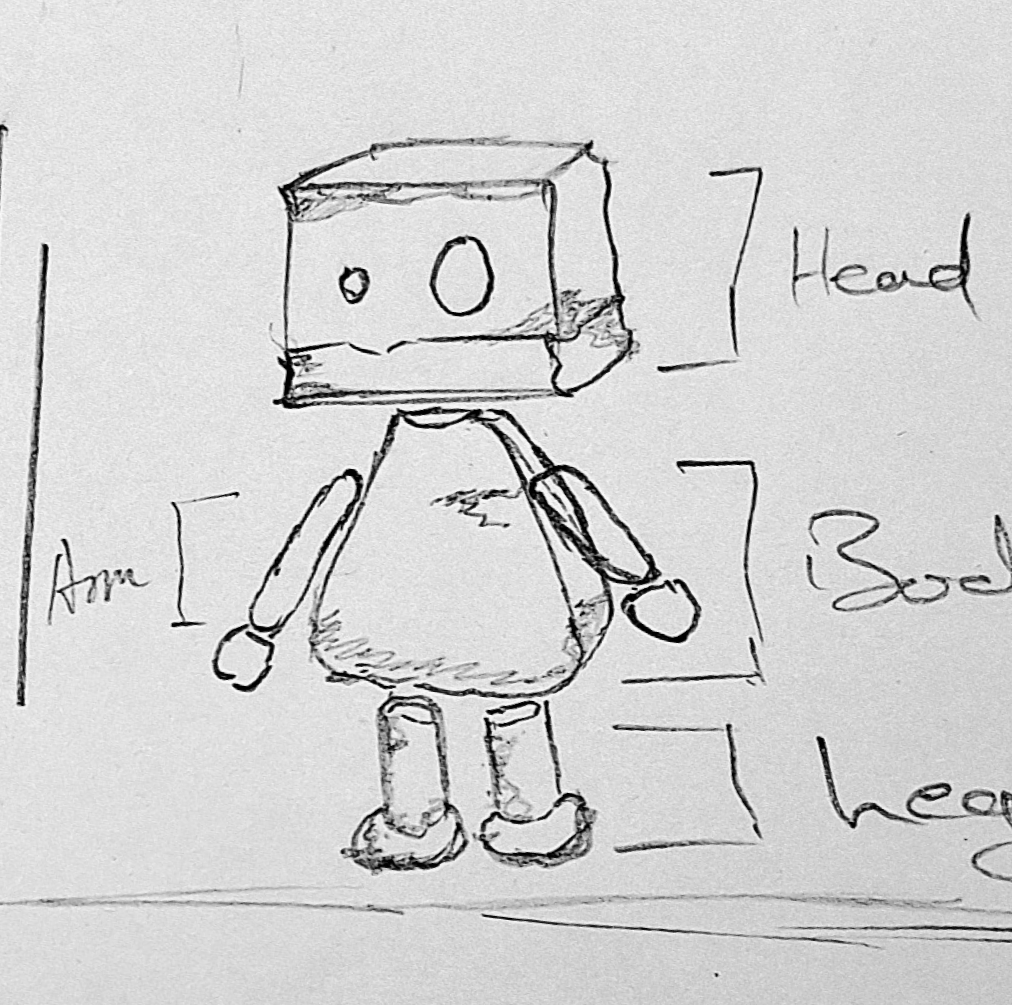 Head
Arm
Bod
Leg